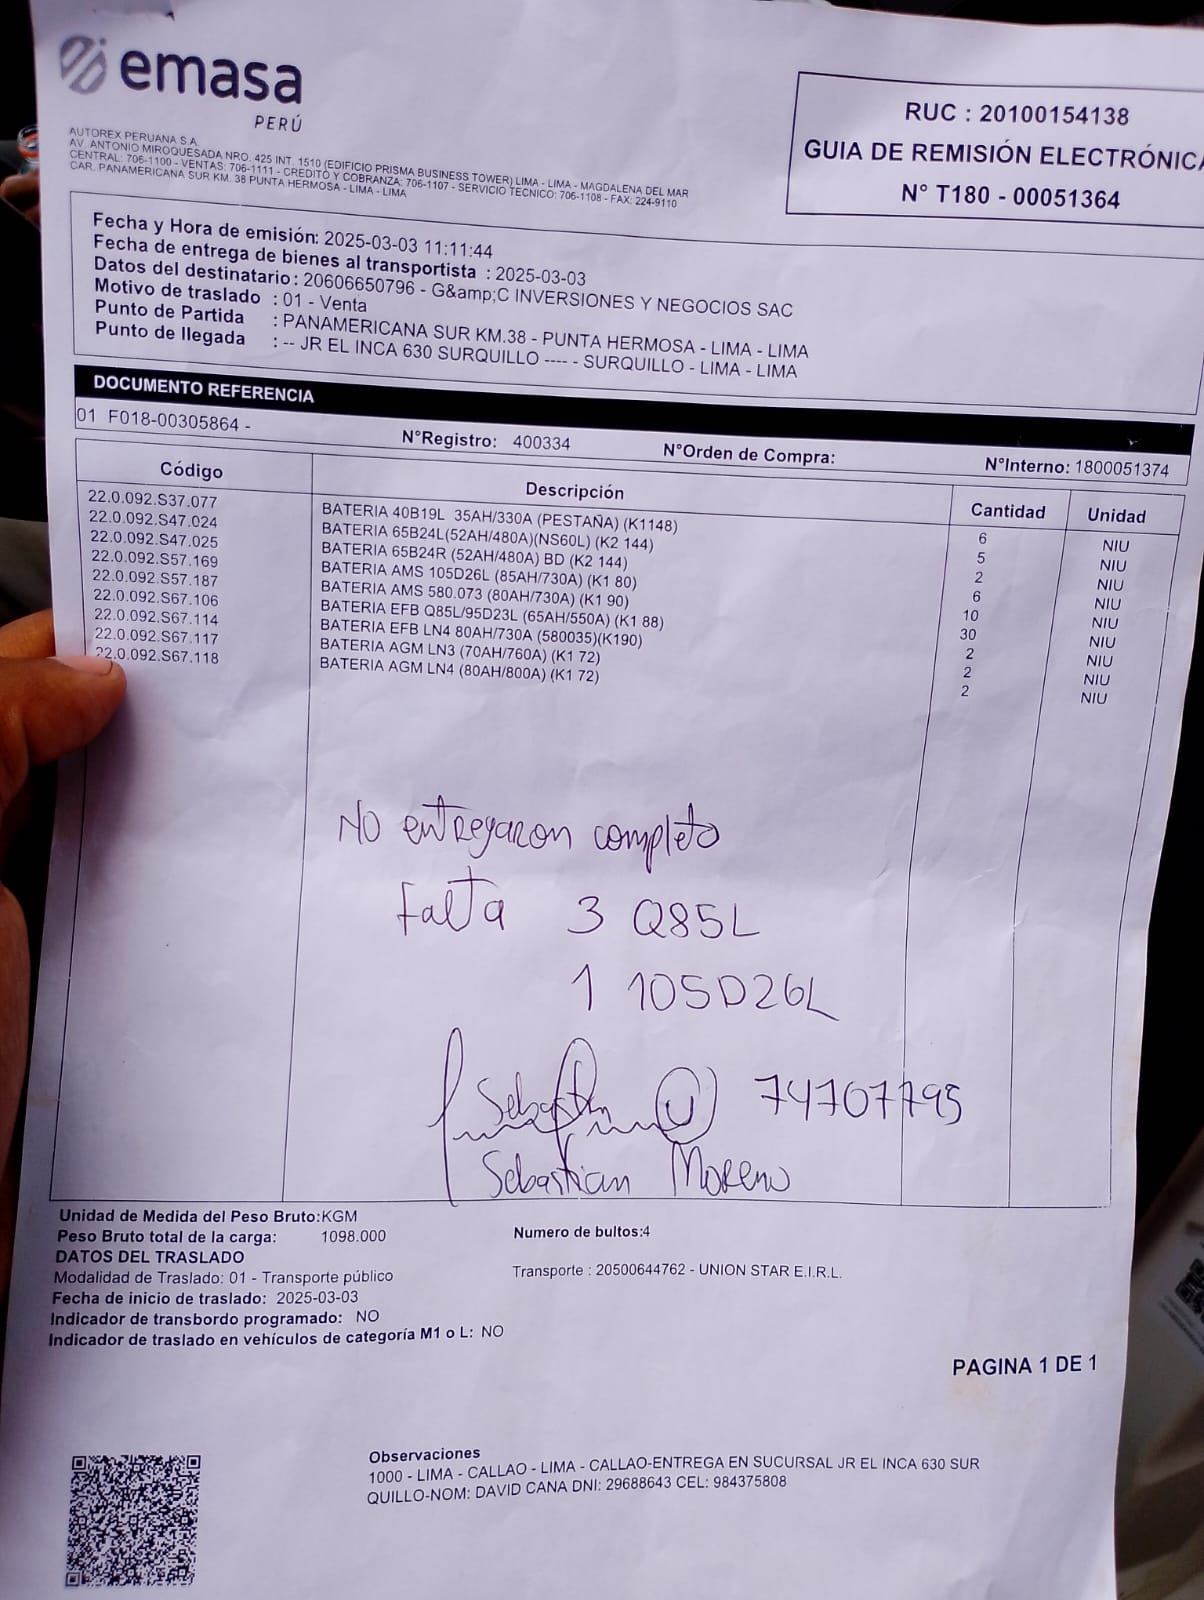 emasa
PERÚ
AUTOREX PERUANA S.A.
AV. ANTONIO MIROQUESADA NRO. 425 INT. 1510 (EDIFICIO PRISMA BUSINESS TOWER) LIMA - LIMA - MAGDALENA DEL MAR
CENTRAL: 706-1100 - VENTAS: 706-1111 - CREDITO Y COBRANZA: 706-1107 - SERVICIO TECNICO: 706-1108 - FAX: 224-9110
CAR. PANAMERICANA SUR KM. 38 PUNTA HERMOSA - LIMA - LIMA
RUC : 20100154138
GUIA DE REMISIÓN ELECTRÓNICA
N° T180 - 00051364
Fecha y Hora de emisión: 2025-03-03 11:11:44
Fecha de entrega de bienes al transportista : 2025-03-03
Datos del destinatario: 20606650796 - G&amp;C INVERSIONES Y NEGOCIOS SAC
Motivo de traslado : 01 - Venta
Punto de Partida : PANAMERICANA SUR KM.38 - PUNTA HERMOSA - LIMA - LIMA
Punto de llegada : -- JR EL INCA 630 SURQUILLO ---- - SURQUILLO - LIMA - LIMA
DOCUMENTO REFERENCIA
01 F018-00305864 - N°Registro: 400334 N°Orden de Compra: N°Interno: 1800051374
Código Descripción Cantidad Unidad
22.0.092.S37.077 BATERIA 40B19L 35AH/330A (PESTAÑA) (K1148) 6 NIU
22.0.092.S47.024 BATERIA 65B24L(52AH/480A)(NS60L) (K2 144) 5 NIU
22.0.092.S47.025 BATERIA 65B24R (52AH/480A) BD (K2 144) 2 NIU
22.0.092.S57.169 BATERIA AMS 105D26L (85AH/730A) (K1 80) 6 NIU
22.0.092.S57.187 BATERIA AMS 580.073 (80AH/730A) (K1 90) 10 NIU
22.0.092.S67.106 BATERIA EFB Q85L/95D23L (65AH/550A) (K1 88) 30 NIU
22.0.092.S67.114 BATERIA EFB LN4 80AH/730A (580035)(K190) 2 NIU
22.0.092.S67.117 BATERIA AGM LN3 (70AH/760A) (K1 72) 2 NIU
22.0.092.S67.118 BATERIA AGM LN4 (80AH/800A) (K1 72) 2 NIU
NO entregaron completo
Falta 3 Q85L
1 105D26L
Sebastian 74707795
Sebastian Moreno
Unidad de Medida del Peso Bruto:KGM
Peso Bruto total de la carga: 1098.000 Numero de bultos:4
DATOS DEL TRASLADO
Modalidad de Traslado: 01 - Transporte público Transporte : 20500644762 - UNION STAR E.I.R.L.
Fecha de inicio de traslado: 2025-03-03
Indicador de transbordo programado: NO
Indicador de traslado en vehículos de categoría M1 o L: NO
PAGINA 1 DE 1
Observaciones
1000 - LIMA - CALLAO - LIMA - CALLAO-ENTREGA EN SUCURSAL JR EL INCA 630 SUR
QUILLO-NOM: DAVID CANA DNI: 29688643 CEL: 984375808